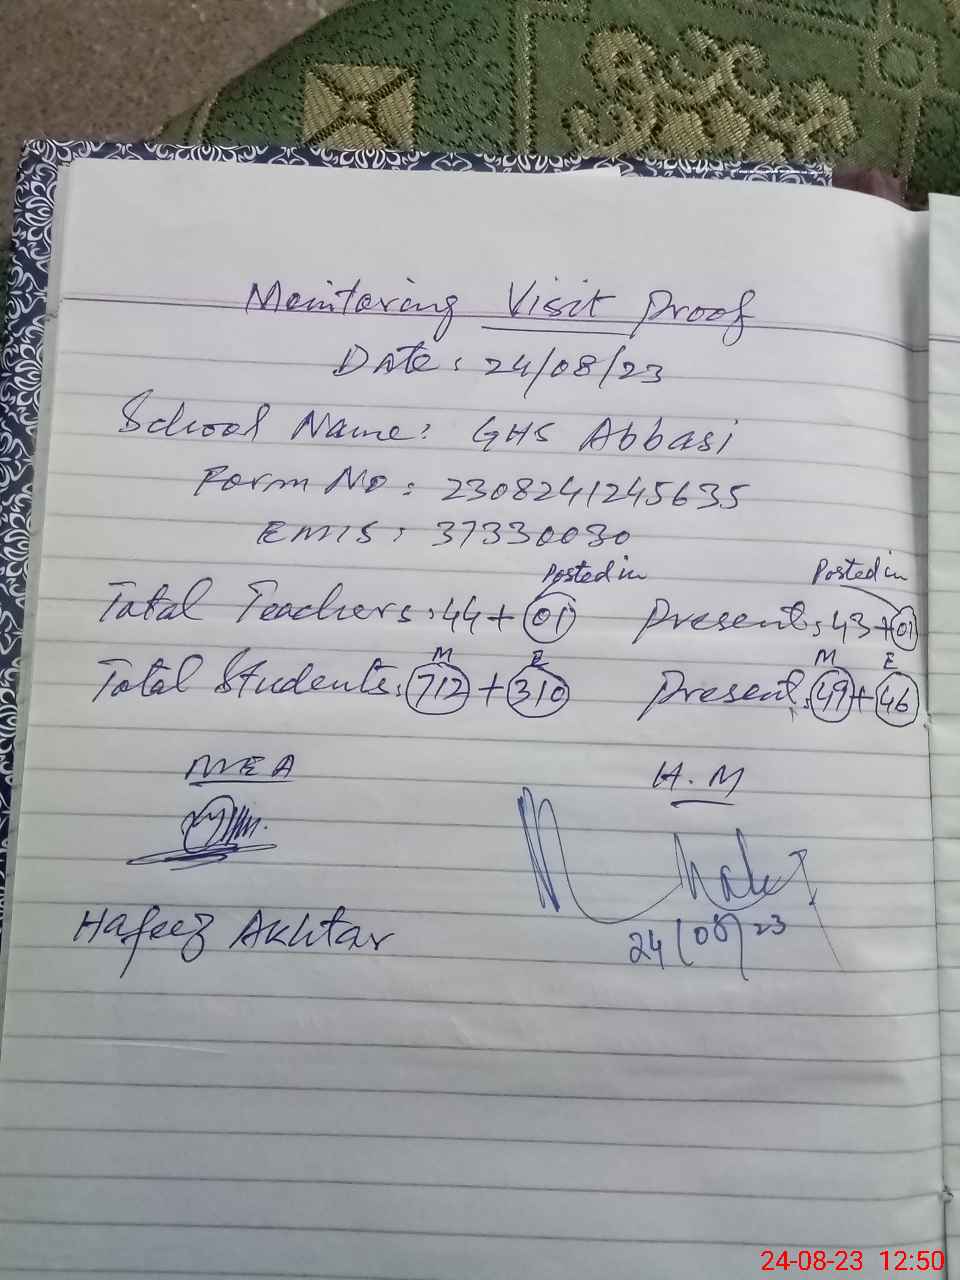 Monitoring Visit Proof
Date: 24/08/23
School Name: GHS Abbasi
Form No: 2308241245635
EMIS: 37330030
Posted in Posted in
Total Teachers: 44 + 01 Present: 43 + 01
M E M E
Total Students: 712 + 310 Present: 49 + 46
MEA H.M
Hafeez Akhtar
24/08/23
24-08-23 12:50